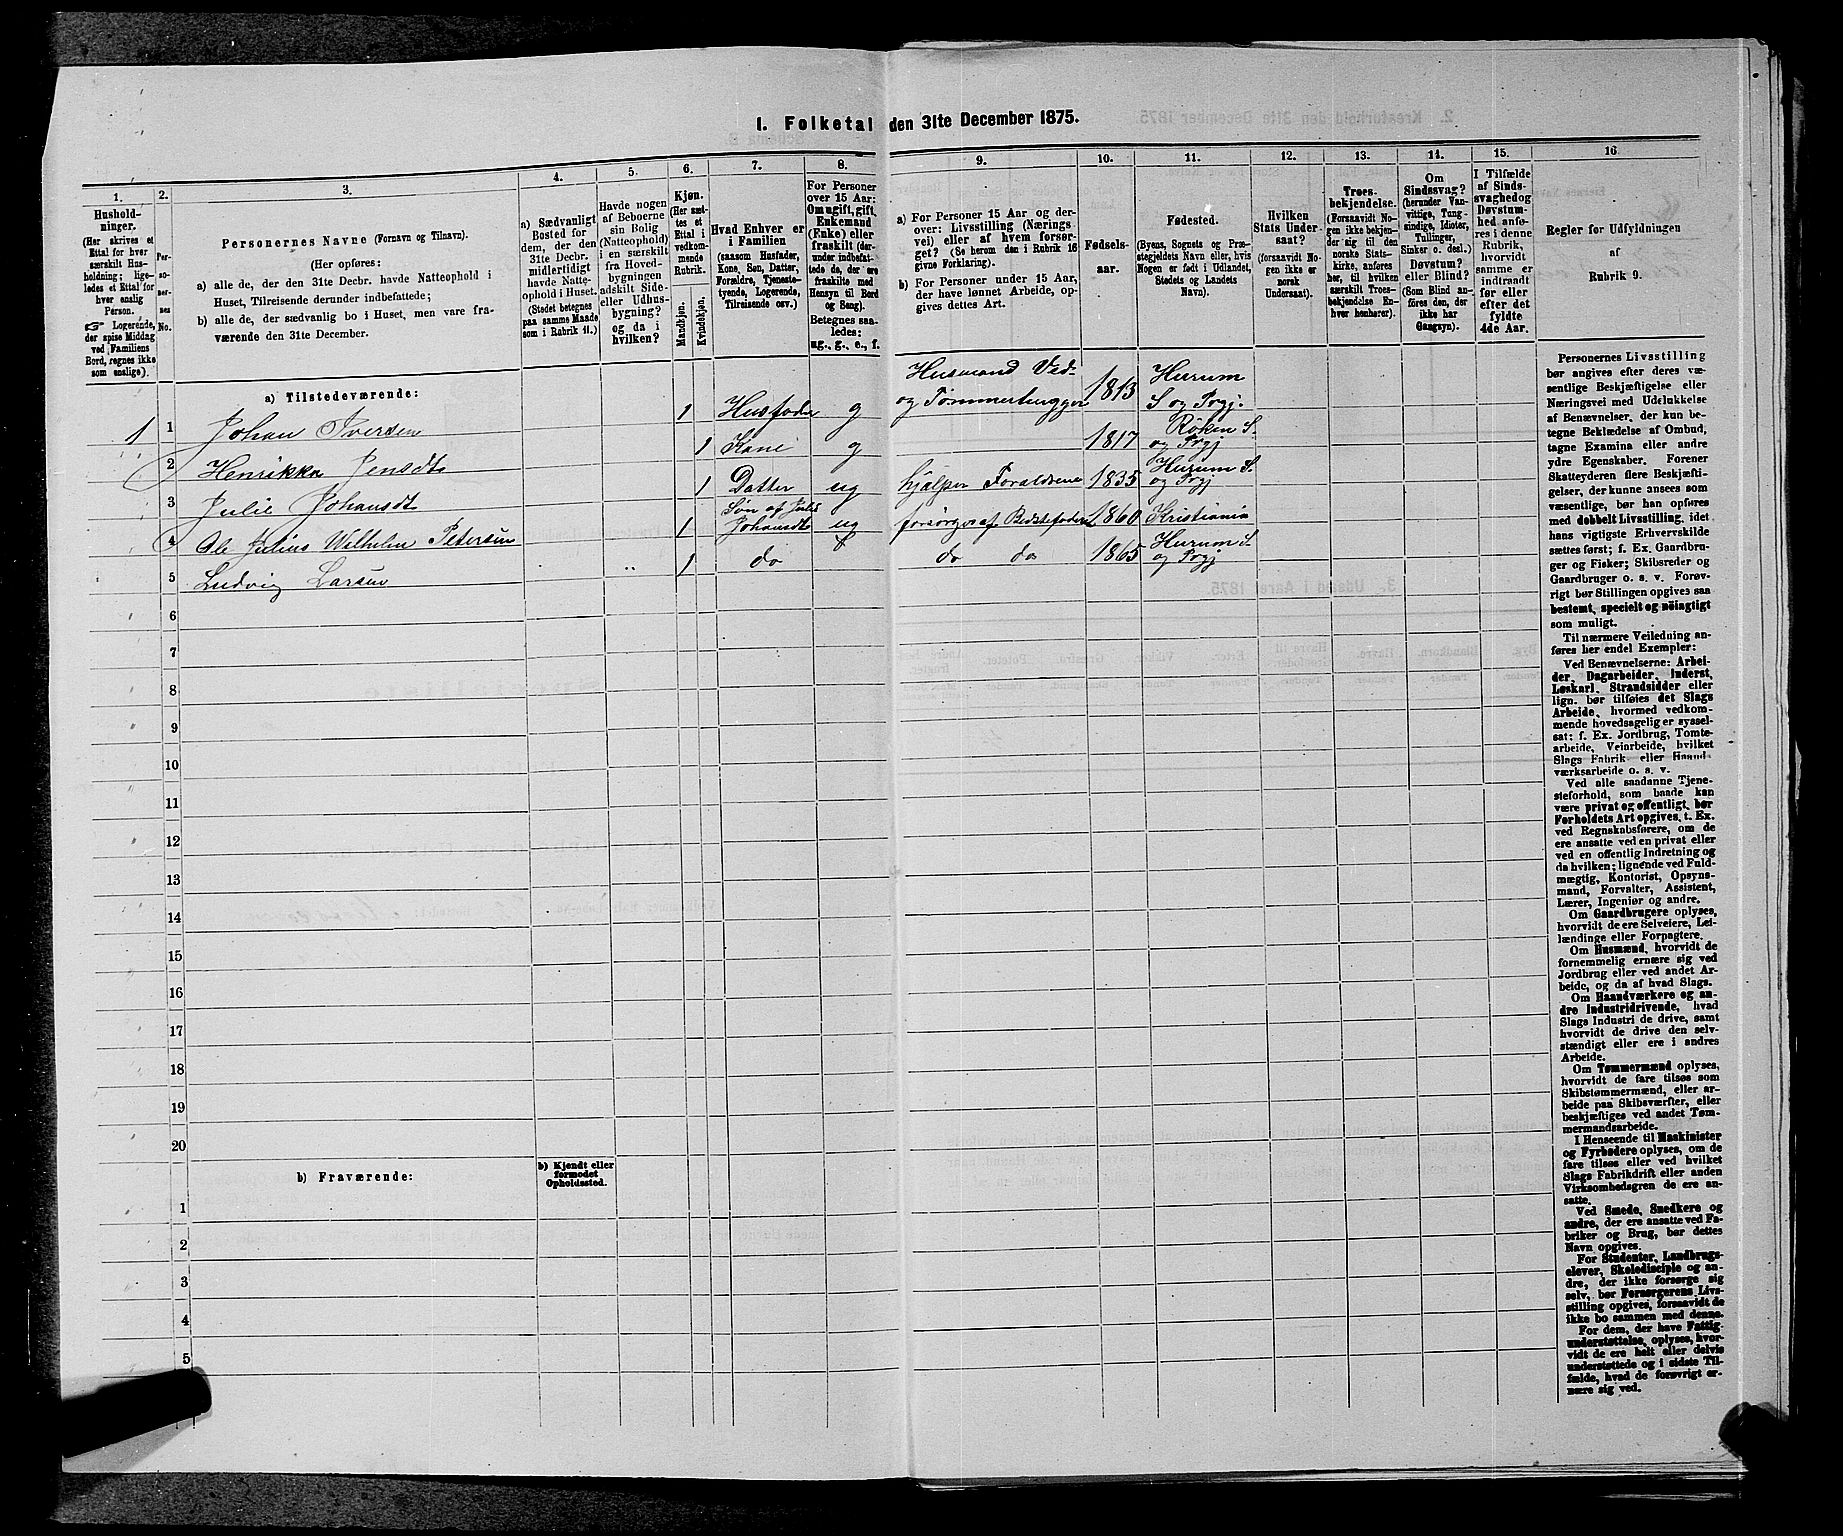 I. Folketal den 31te December 1875.
1.
Hushold-
ninger.
(Her skrives et
Ettal for hver
særskilt Hus-
holdning; lige-
ledes et Ettal for
hver enslig
Person.
☞ Logerende,
der spise Middag
ved Familiens
Bord, regnes ikke
som enslige).
2.
Per-
so-
ner-
nes
No.
3.
Personernes Navne (Fornavn og Tilnavn).
(Her opføres:
a) alle de, der den 31te Decbr. havde Natteophold i
Huset, Tilreisende derunder indbefattede;
b) alle de, der sædvanlig bo i Huset, men vare fra-
værende den 31te December.
4.
a) Sædvanligt
Bosted for
dem, der den
31te Decbr.
midlertidigt
havde Natte-
ophold i Huset.
(Stedet betegnes
paa samme Maade
som i Rubrik 11.)
5.
Havde nogen
af Beboerne
sin Bolig
(Natteophold)
i en særskilt
fra Hoved-
bygningen
adskilt Side-
eller Udhus-
bygning?
og da i
hvilken?
6.
Kjøn.
(Her sæt-
tes et
Ettal i
vedkom-
mende
Rubrik.
Mandkjøn.
Kvindekjøn.
7.
Hvad Enhver er
i Familien
(saasom Husfader,
Kone, Søn, Datter,
Forældre, Tjeneste-
tyende, Logerende,
Tilreisende osv.)
8.
For Personer
over 15 Aar:
Om ugift, gift,
Enkemand
(Enke) eller
fraskilt (der-
under indbefat-
tede de, der ere
fraskilte med
Hensyn til Bord
og Seng).
Betegnes saa-
ledes:
ug., g., e., f.
9.
a) For Personer 15 Aar og der-
over: Livsstilling (Nærings-
vei) eller af hvem forsør-
get? (Se herom den i Rubrik 16
givne Forklaring).
b) For Personer under 15 Aar,
der have lønnet Arbeide, op-
gives dettes Art.
10.
Fødsels-
aar.
11.
Fødested.
(Byens, Sognets og Præ-
stegjeldets Navn eller, hvis
Nogen er født i Udlandet,
Stedets og Landets
Navn).
12.
Hvilken
Stats Under-
saat?
(forsaavidt No-
gen ikke er
norsk
Undersaat).
13.
Troes-
bekjendelse.
(Forsaavidt No-
gen ikke bekjen-
der sig til den
norske Stats-
kirke, anføres
her, til hvilken
særskilt Troes-
bekjendelse En-
hver henhører).
14.
Om
Sindssvag?
(herunder Van-
vittige, Tung-
sindige, Idioter,
Tullinger,
Sinker o. desl.)
Døvstum?
eller Blind?
(Som Blind an-
føres den, der
ikke har
Gangsyn).
15.
I Tilfælde
af Sinds-
svaghed og
Døvstum-
hed anfø-
res i denne
Rubrik,
hvorvidt
samme er
indtraadt
før eller
efter det
fyldte
4de Aar.
16
Regler for Udfyldningen
af
Rubrik 9.
a) Tilstedeværende:
1 1 Johan Iversen 1 Husfader g Husmand Ved-
og Tømmerhugger 1813 Hurum
S og Prgj.
2 Henrikka Jensdt 1 Kone g 1817 Røken S.
og Prgj
3 Julie Johansdt 1 Datter ug hjælper Forældrene 1835 Hurum S.
og Prgj
4 Ole Julius Wilhelm Petersen 1 Søn af Julie
Johansdt ug forsørges af Bedstefader 1860 Kristiania
5 Ludvig Larsen " 1 do do do 1865 Hurum S.
og Prgj
6
7
8
9
10
11
12
13
14
15
16
17
18
19
20
b) Fraværende:
b) Kjendt eller
formodet
Opholdssted.
1
2
3
4
5
Personernes Livsstilling
bør angives efter deres væ-
sentlige Beskjæftigelse eller
Næringsvei med Udelukkelse
af Benævnelser, der kun be-
tegne Beklædelse af Ombud,
tagne Examina eller andre
ydre Egenskaber. Forener
Skatteyderen flere Beskjæfti-
gelser, der kunne ansees som
væsentlige, bør han opføres
med dobbelt Livsstilling, idet
hans vigtigste Erhvervskilde
sættes først; f. Ex. Gaardbru-
ger og Fisker; Skibsreder og
Gaardbruger o. s. v. Forøv-
rigt bør Stillingen opgives saa
bestemt, specielt og nøiagtigt
som muligt.
Til nærmere Veiledning an-
føres her endel Exempler:
Ved Benævnelserne: Arbei-
der, Dagarbeider, Inderst,
Løskarl, Strandsidder eller
lign. bør tilføies det Slags
Arbeide, hvormed vedkom-
mende hovedsagelig er syssel-
sat; f. Ex. Jordbrug, Tomte-
arbeide, Veiarbeide, hvilket
Slags Fabrik- eller Haand-
værksarbeide o. s. v.
Ved alle saadanne Tjene-
steforhold, som baade kan
være privat og offentligt, bør
Forholdets Art opgives, t. Ex.
ved Regnskabsførere, om de
ere ansatte ved en privat eller
ved en offentlig Indretning og
da hvilken; lignende ved Fuld-
mægtig, Kontorist, Opsyns-
mand, Forvalter, Assistent,
Lærer, Ingeniør og andre.
Om Gaardbrugere oplyses,
hvorvidt de ere Selveiere, Lei-
lændinge eller Forpagtere.
Om Husmænd, hvorvidt de
fornemmelig ernære sig ved
Jordbrug eller ved andet Ar-
beide, og da af hvad Slags.
Om Haandværkere og an-
dre Industridrivende, hvad
Slags Industri de drive, samt
hvorvidt de drive den selv-
stændigt eller ere i andres
Arbeide.
Om Tømmermænd oplyses,
hvorvidt de fare tilsøs som
Skibstømmermænd, eller ar-
beide paa Skibsværfter, eller
beskjæftiges ved andet Tøm-
mermandsarbeide.
I Henseende til Maskinister
og Fyrbødere oplyses, om de
fare tilsøs eller ved hvilket
Slags Fabrikdrift eller anden
Virksomhedsgren de ere an-
satte.
Ved Smede, Snedkere og
andre, der ere ansatte ved Fa-
briker og Brug, bør dettes
Navn opgives.
For Studenter, Landbrugs-
elever, Skoledisciple og an-
dre, der ikke forsørge sig
selv, bør Forsørgerens Livs-
stilling opgives, forsaavidt de
ikke bo sammen med denne.
For dem, der have Fattig-
understøttelse, oplyses, hvor-
vidt de ere helt eller delvis
understøttede og i sidste Til-
fælde, hvad de forøvrigt er-
nære sig ved.